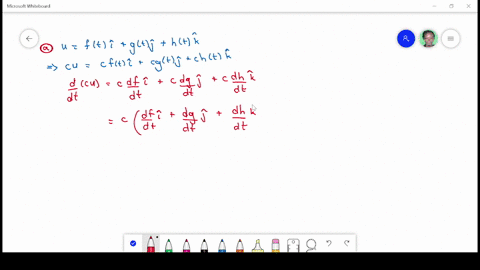 Microsoft Whiteboard
ⓐ u = f(t) î + g(t) ĵ + h(t) k̂
⇒ cu = cf(t) î + cg(t) ĵ + ch(t) k̂
d/dt (cu) = c df/dt î + c dg/dt ĵ + c dh/dt k̂
= c ( df/dt î + dg/dt ĵ + dh/dt k̂